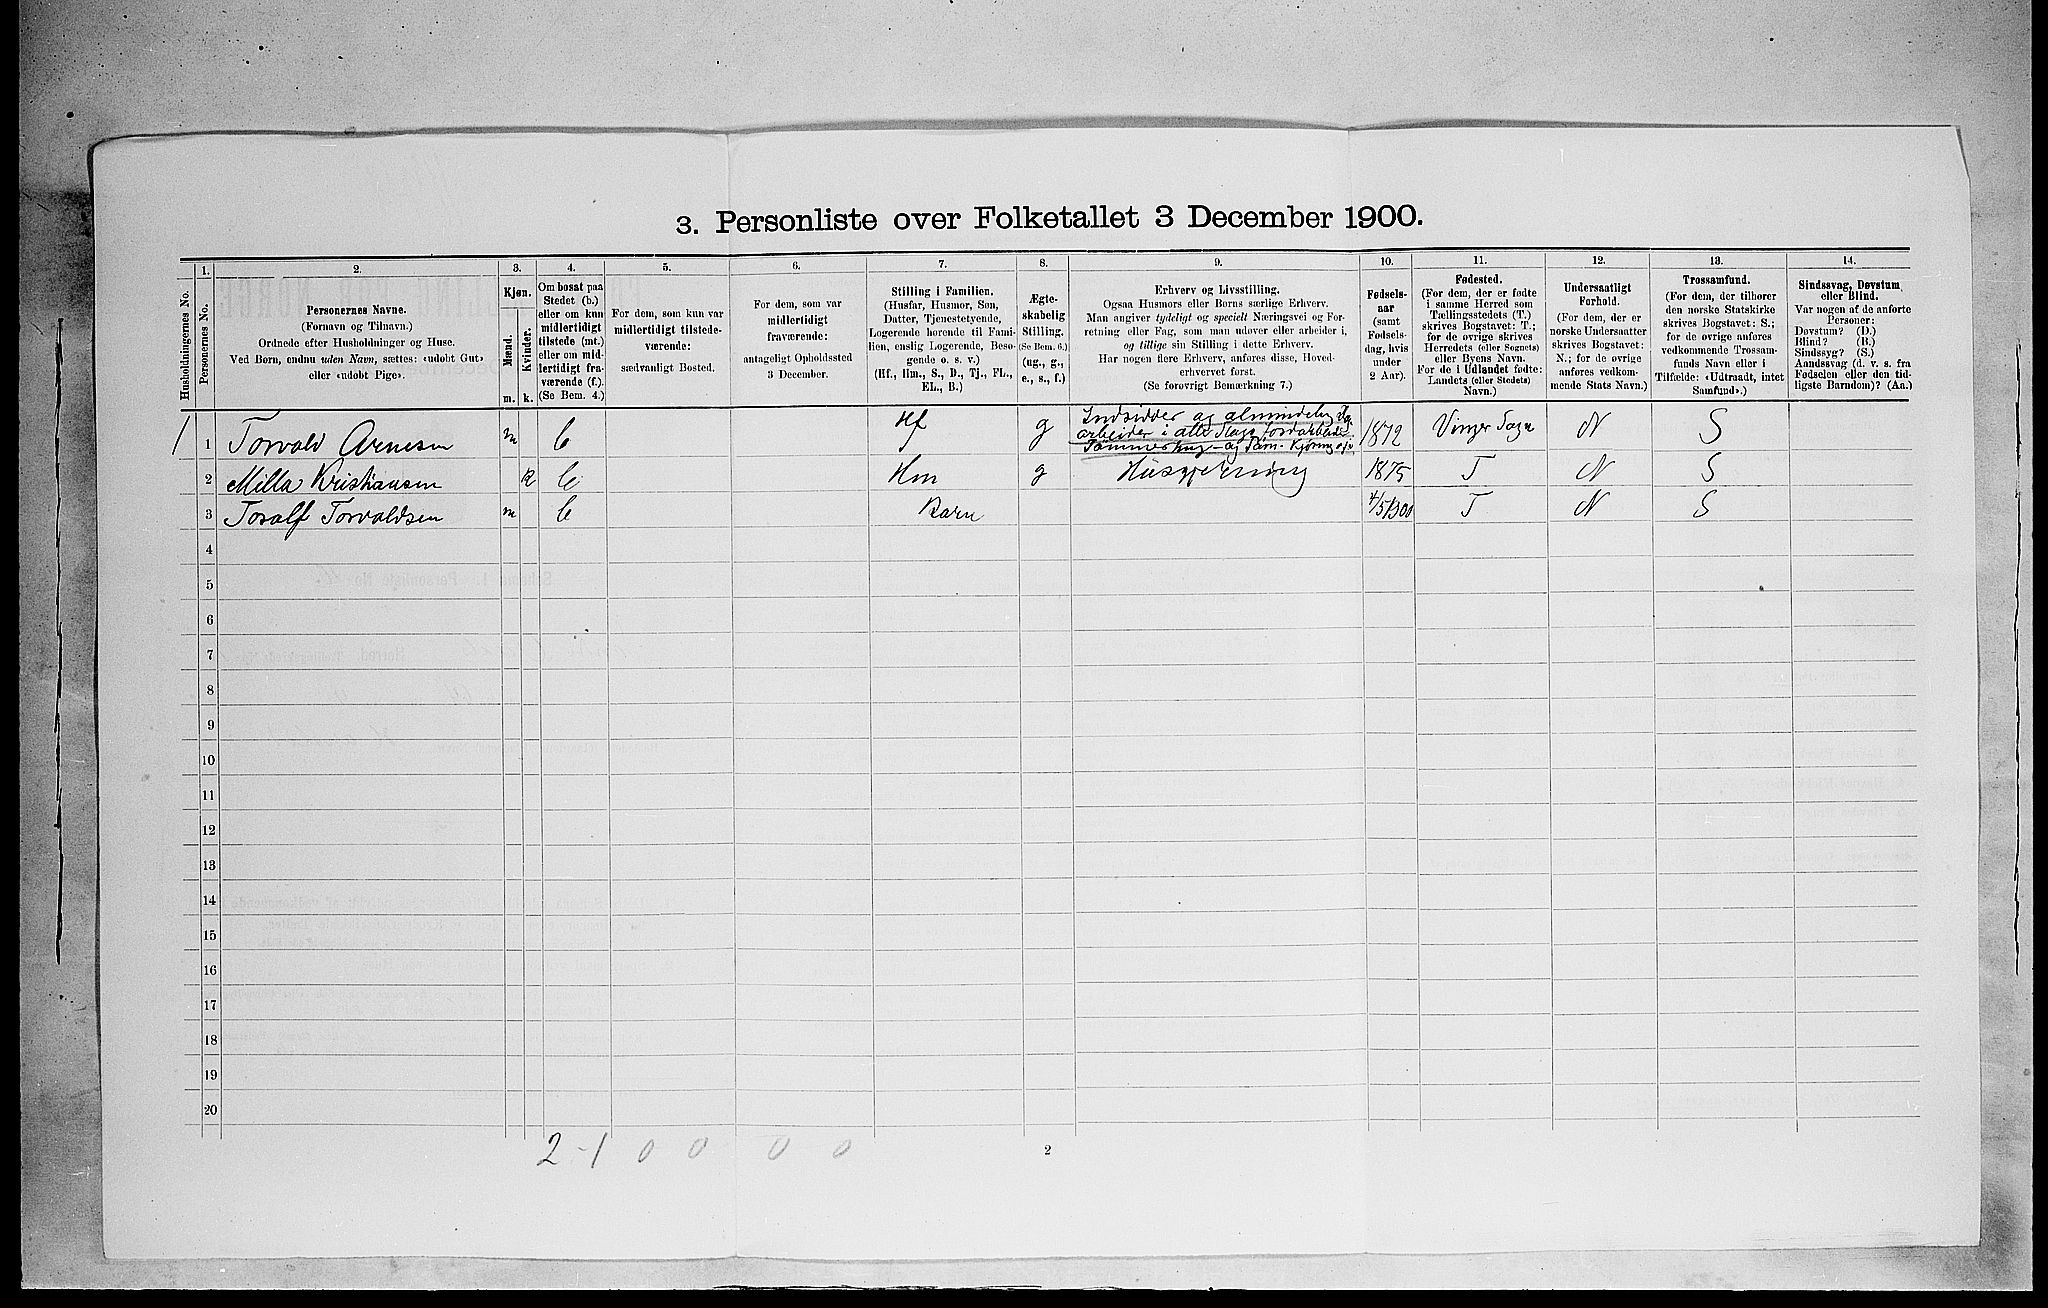 3. Personliste over Folketallet 3 December 1900.
Husholdningernes No.
1.
Personernes No.
2.
Personernes Navne.
(Fornavn og Tilnavn.)
Ordnede efter Husholdninger og Huse.
Ved Børn, endnu uden Navn, sættes: «udøbt Gut»
eller «udøbt Pige».
3.
Kjøn.
Mænd.
m.
Kvinder.
k.
4.
Om bosat paa
Stedet (b.)
eller om kun
midlertidigt
tilstede (mt.)
eller om mid-
lertidigt fra-
værende (f.).
(Se Bem. 4.)
5.
For dem, som kun var
midlertidigt tilstede-
værende:
sædvanligt Bosted.
6.
For dem, som var
midlertidigt
fraværende:
antageligt Opholdssted
3 December.
7.
Stilling i Familien.
(Husfar, Husmor, Søn,
Datter, Tjenestetyende,
Logerende hørende til Fami-
lien, enslig Logerende, Besø-
gende o. s. v.)
(Hf., Hm., S., D., Tj., FL.,
EL., B.)
8.
Ægte-
skabelig
Stilling.
(Se Bem. 6.)
(ug., g.,
e., s., f.)
9.
Erhverv og Livsstilling.
Ogsaa Husmors eller Børns særlige Erhverv.
Man angiver tydeligt og specielt Næringsvei og For-
retning eller Fag, som man udøver eller arbeider i,
og tillige sin Stilling i dette Erhverv.
Har nogen flere Erhverv, anføres disse, Hoved-
erhvervet først.
(Se forøvrigt Bemærkning 7.)
10.
Fødsels-
aar
(samt
Fødsels-
dag, hvis
under
2 Aar).
11.
Fødested.
(For dem, der er fødte
i samme Herred som
Tællingsstedets (T.)
skrives Bogstavet: T.;
for de øvrige skrives
Herredets (eller Sognets)
eller Byens Navn.
For de i Udlandet fødte:
Landets (eller Stedets)
Navn.)
12.
Undersaatligt
Forhold.
(For dem, der er
norske Undersaatter
skrives Bogstavet:
N.; for de øvrige
anføres vedkom-
mende Stats Navn.)
13.
Trossamfund.
(For dem, der tilhører
den norske Statskirke
skrives Bogstavet: S.;
for de øvrige anføres
vedkommende Trossam-
funds Navn eller i
Tilfælde: «Udtraadt, intet
Samfund».)
14.
Sindssvag, Døvstum
eller Blind.
Var nogen af de anførte
Personer:
Døvstum? (D.)
Blind? (B.)
Sindssyg? (S.)
Aandssvag (d. v. s. fra
Fødselen eller den tid-
ligste Barndom)? (Aa.)
1 1 Torvald Arnesen m b Hf g Indsidder og almindelig Dag
arbeider i alle Slags Jordarbeide
Tømmerhug- og Tøm. Kjøring o/v 1872 Vinger Sogn N S
2 Milla Kristiansen k b Hm g Husgjerning 1875 T N S
3 Toralf Torvaldsen m b Barn 4/5 1900 T N S
4
5
6
7
8
9
10
11
12
13
14
15
16
17
18
19
20
2-1 0 0 0 0 2